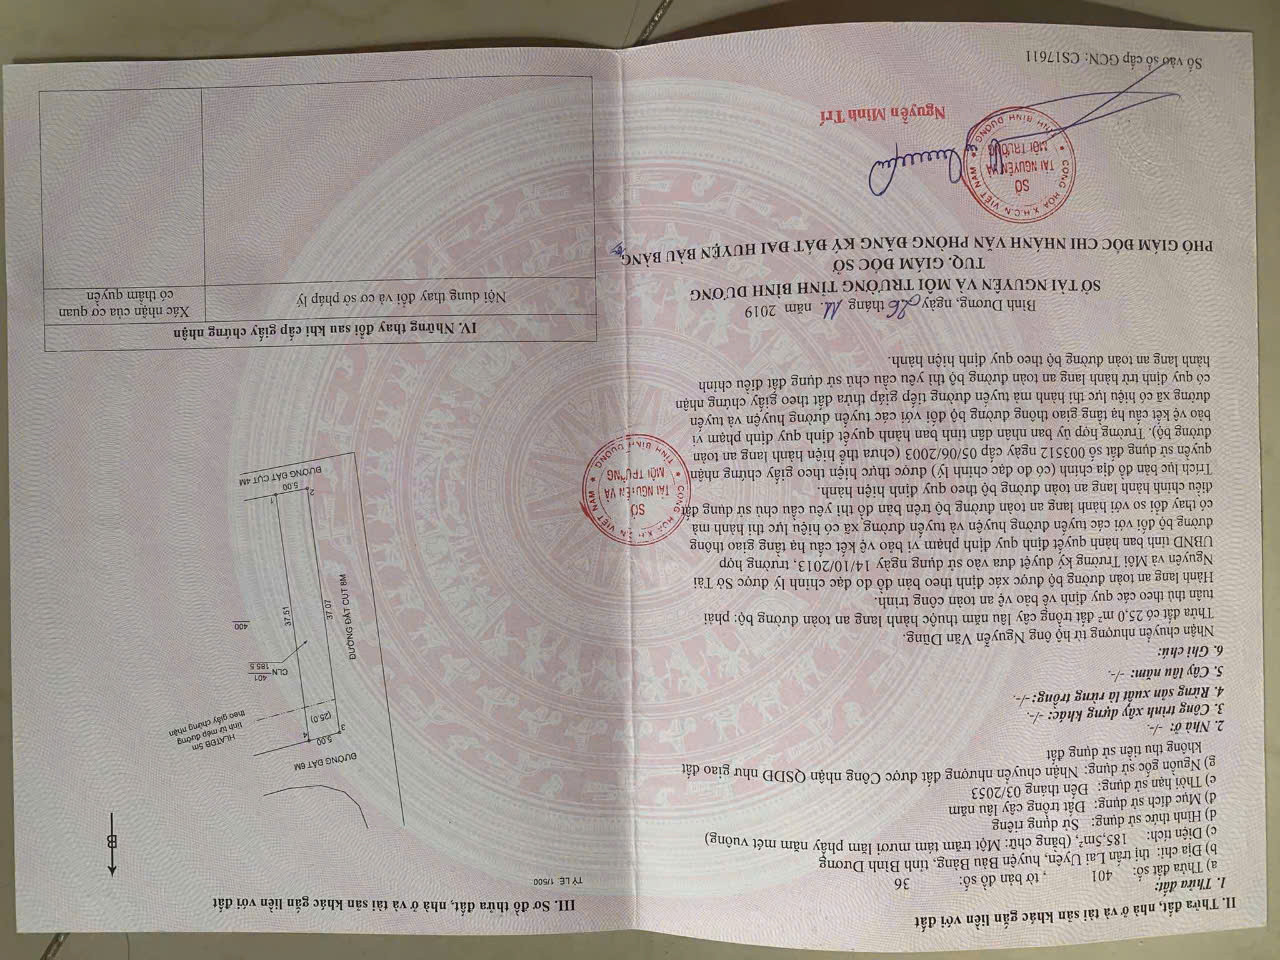 II. Thửa đất, nhà ở và tài sản khác gắn liền với đất
1. Thửa đất:
a) Thửa đất số: 401 , tờ bản đồ số: 36
b) Địa chỉ: thị trấn Lai Uyên, huyện Bàu Bàng, tỉnh Bình Dương
c) Diện tích: 185,5m², (bằng chữ: Một trăm tám mươi lăm phẩy năm mét vuông)
d) Hình thức sử dụng: Sử dụng riêng
đ) Mục đích sử dụng: Đất trồng cây lâu năm
e) Thời hạn sử dụng: Đến tháng 03/2053
g) Nguồn gốc sử dụng: Nhận chuyển nhượng đất được Công nhận QSDĐ như giao đất
không thu tiền sử dụng đất
2. Nhà ở: -/-.
3. Công trình xây dựng khác: -/-.
4. Rừng sản xuất là rừng trồng: -/-.
5. Cây lâu năm: -/-.
6. Ghi chú:
Nhận chuyển nhượng từ hộ ông Nguyễn Văn Dũng.
Thửa đất có 25,0 m² đất trồng cây lâu năm thuộc hành lang an toàn đường bộ: phải
tuân thủ theo các quy định về bảo vệ an toàn công trình.
Hành lang an toàn đường bộ được xác định theo bản đồ đo đạc chính lý được Sở Tài
Nguyên và Môi Trường ký duyệt đưa vào sử dụng ngày 14/10/2013, trường hợp
UBND tỉnh ban hành quyết định quy định phạm vi bảo vệ kết cấu hạ tầng giao thông
đường bộ đối với các tuyến đường huyện và tuyến đường xã có hiệu lực thi hành mà
có thay đổi so với hành lang an toàn đường bộ trên bản đồ thì yêu cầu chủ sử dụng đất
điều chỉnh hành lang an toàn đường bộ theo quy định hiện hành.
Trích lục bản đồ địa chính (có đo đạc chỉnh lý) được thực hiện theo giấy chứng nhận
quyền sử dụng đất số 003512 ngày cấp 05/06/2003 (chưa thể hiện hành lang an toàn
đường bộ). Trường hợp ủy ban nhân dân tỉnh ban hành quyết định quy định phạm vi
bảo vệ kết cấu hạ tầng giao thông đường bộ đối với các tuyến đường huyện và tuyến
đường xã có hiệu lực thi hành mà tuyến đường tiếp giáp thửa đất theo giấy chứng nhận
có quy định trừ hành lang an toàn đường bộ thì yêu cầu chủ sử dụng đất điều chỉnh
hành lang an toàn đường bộ theo quy định hiện hành.
Bình Dương, ngày 26 tháng 11. năm 2019
SỞ TÀI NGUYÊN VÀ MÔI TRƯỜNG TỈNH BÌNH DƯƠNG
TUQ. GIÁM ĐỐC SỞ
PHÓ GIÁM ĐỐC CHI NHÁNH VĂN PHÒNG ĐĂNG KÝ ĐẤT ĐAI HUYỆN BÀU BÀNG
CỘNG HÒA X.H.C.N. VIỆT NAM
SỞ
TÀI NGUYÊN VÀ
MÔI TRƯỜNG
TỈNH BÌNH DƯƠNG
Nguyễn Minh Trí
Số vào sổ cấp GCN: CS17611
CỘNG HÒA X.H.C.N. VIỆT NAM
SỞ
TÀI NGUYÊN VÀ
MÔI TRƯỜNG
TỈNH BÌNH DƯƠNG
III. Sơ đồ thửa đất, nhà ở và tài sản khác gắn liền với đất
TỶ LỆ 1/500
B
ĐƯỜNG ĐẤT 6M
HLATĐB 5m
tính từ mép đường
theo giấy chứng nhận
3
5.00
4
(25.0)
CLN
401
185.5
400
37.07
37.51
ĐƯỜNG ĐẤT CỤT 8M
2
5.00
1
ĐƯỜNG ĐẤT CỤT 4M
IV. Những thay đổi sau khi cấp giấy chứng nhận
Nội dung thay đổi và cơ sở pháp lý
Xác nhận của cơ quan
có thẩm quyền